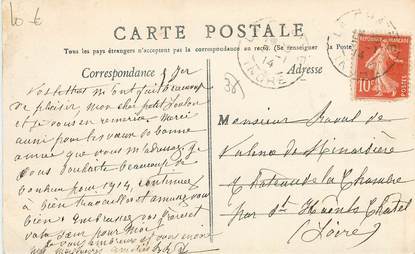 10 €
CARTE POSTALE
Tous les pays étrangers n'acceptent pas la correspondance au recto. (Se renseigner à la Poste)
Correspondance
Adresse
36
RÉPUBLIQUE FRANÇAISE
10
14
INDRE
Vos lettres m'ont fait beaucoup
de plaisir, mon cher petit
et je vous en remercie. Merci
aussi pour les vœux de bonne
année que vous m'adressez. Je
vous souhaite beaucoup de
bonheur pour 1914, continuez
à bien travailler et amusez vous
bien. Embrassez vos
pour moi
Je vous embrasse
Monsieur Raoul de
Valence de Minardière
Château de la Chambre
par St
(Loire)